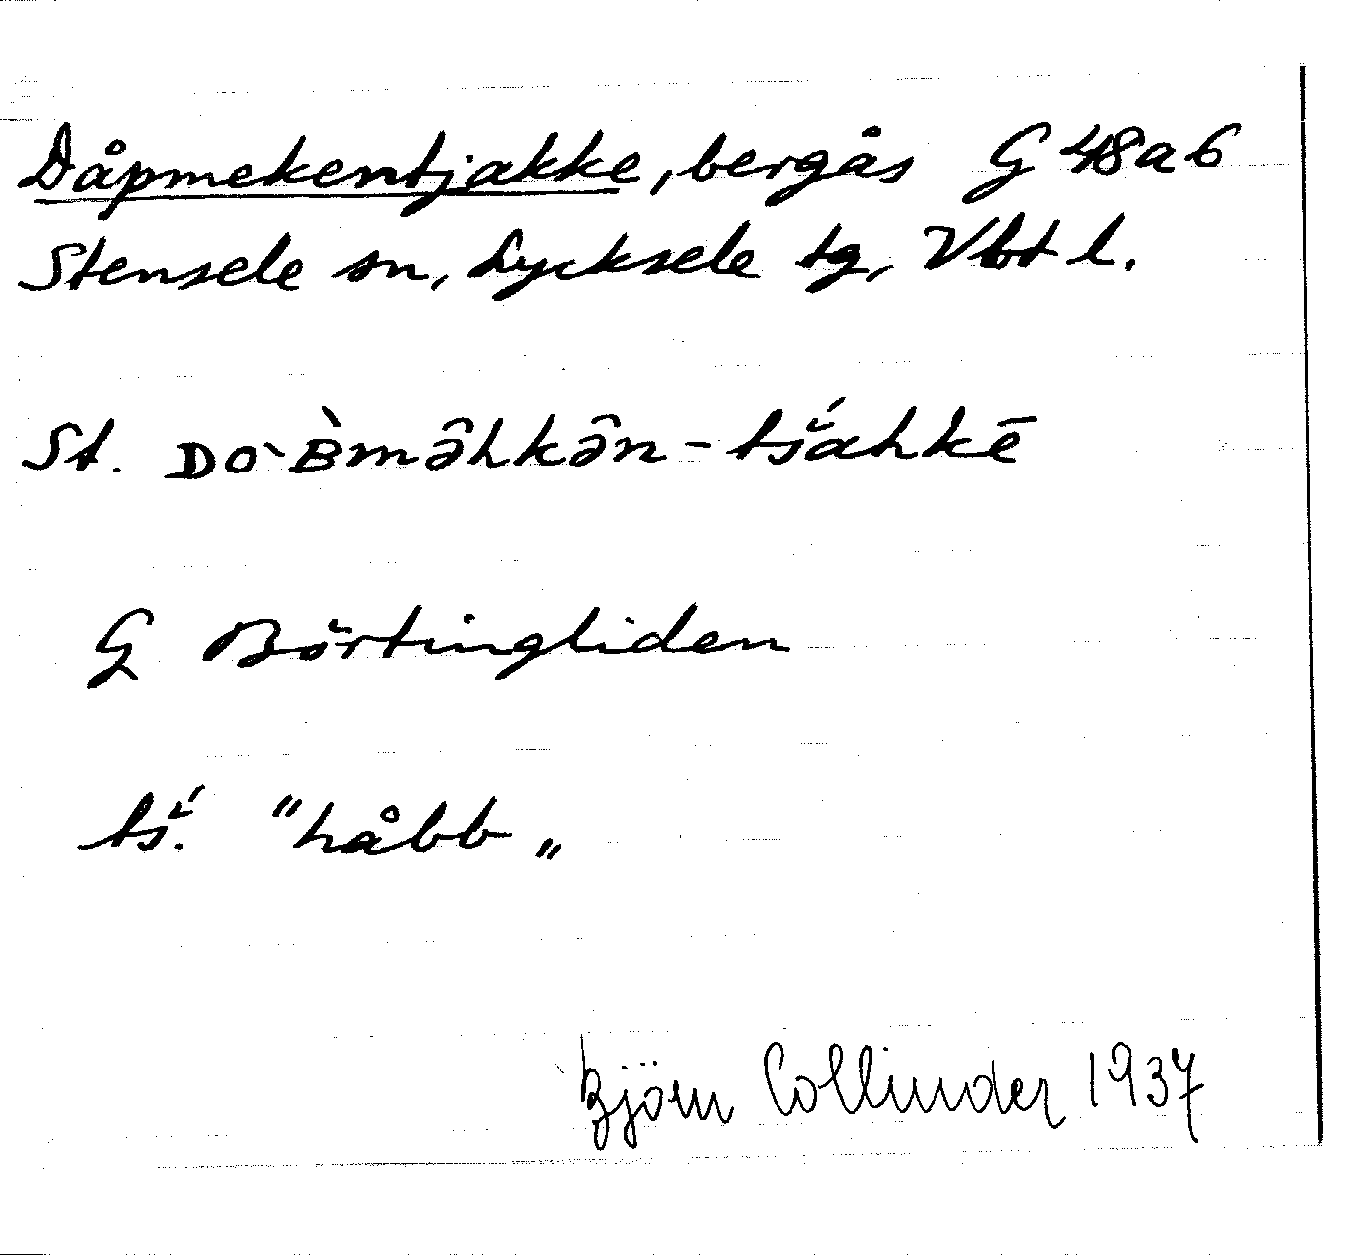 Dåpmekentjakke, bergås G 48 a 6
Stensele sn, Lycksele tg, Vbt l.
St. ᴅo`ʙ̀mâhkân-tš́ahkē
G Börtingliden
tš́. "håbb"
Björn Collinder 1937